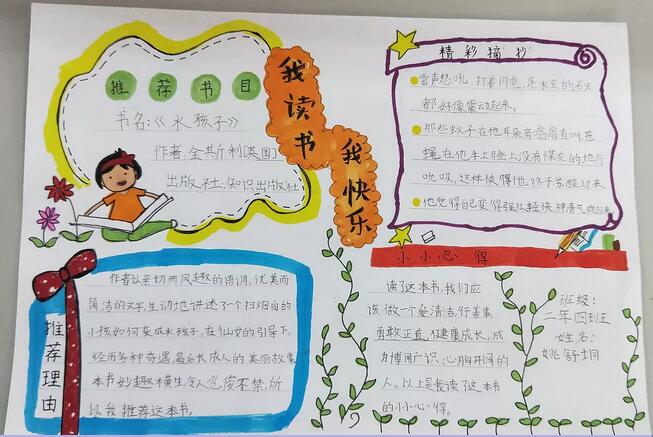 推荐书目
书名:《水孩子》
作者:金斯利[英国]
出版社:知识出版社
我读书
我快乐
精彩摘抄
雷声怒吼,打着闪电,连水里的石头
都好像震动起来。
那些蚊子在他耳朵旁嗡嗡直叫,苍
蝇在他手上脸上没有煤灰的地方
吮吸,这样使得他终于苏醒过来。
他觉得自己变得强壮轻快
推荐理由
作者以亲切而风趣的语调,优美而
简洁的文字,生动地讲述了一个扫烟囱的
小孩如何变成水孩子,在仙女的引导下,
经历各种奇遇,最后长成人的美丽故事
本书妙趣横生,令人忍俊不禁,所
以我推荐这本书。
小小心得
读了这本书,我们应
该做一个爱清洁,行善事,
勇敢正直,健康成长,成
为博闻广识,心胸开阔的
人。以上是我读了这本书
的小小心得。
班级:
二年四班
姓名:
姚舒